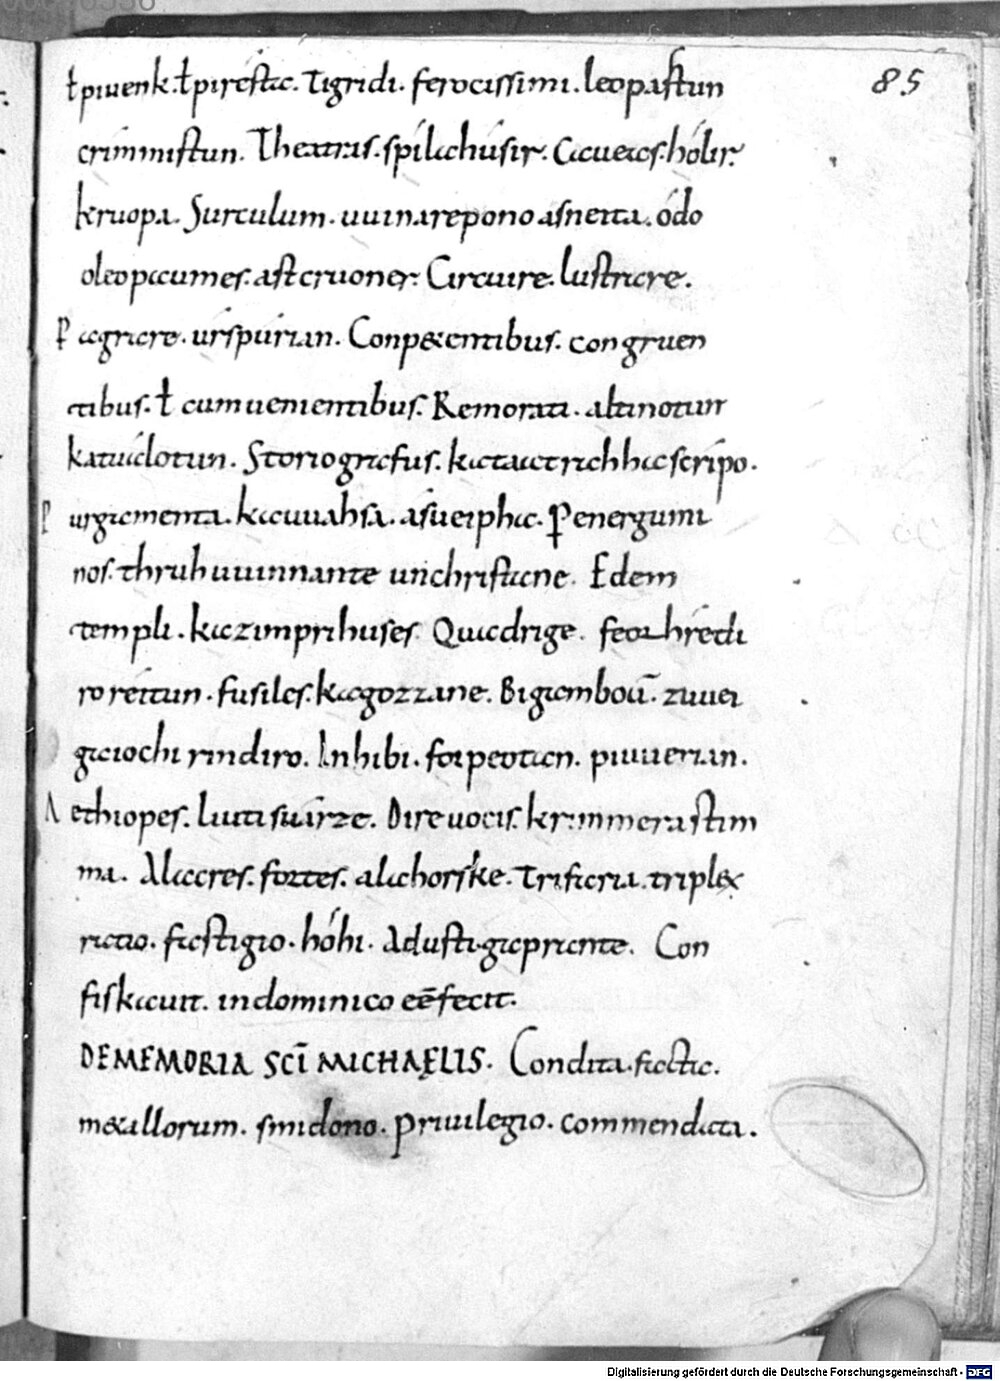 85
ł piuenk. ł pirestic. Tigridi. ferocissimi. leopastun
crimmistun. Theatras. spilichúsir. Cacueas. hólir.
kruopa. Surculum. uuinarepono asneita. ódo
oleopaumes. ast cruoner. Circuire. lustrare.
Pagrare. úrspúrian. Conpexentibus. congruen
tibus. ł cum uenientibus. Remorati. altinotun
katuúlotun. Storiografus. kataatrichhascripo.
Purgamenta. kauuahsa. asueipha. P energumi
nos. thruhuuinnante unchristane. Edem
templi. kazimprihuses. Quadrige. feorhrédi
roreitun. fusiles. kagozzane. Bigamboū. zuuei
gaiochi rindiro. Inhibi. forpeotan. piuuerian.
Aethiopes. liuti suárze. Dire uocis. krimmerastim
ma. Alacres. fortes. alichorske. Trifaria. triplex
ratio. fastigio. hóhi. Adusti. gaprante. Con
fiskauit. indominico eēfecit.
DEMEMORIA SCĪ MICHAĘLIS. Condita. facta.
metallorum. smidono. Priuilegio. commendata.
Digitalisierung gefördert durch die Deutsche Forschungsgemeinschaft - DFG